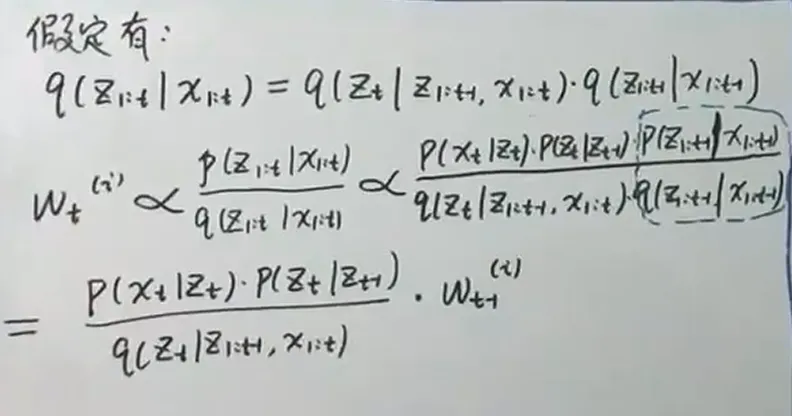 假定有:
q(z₁:t | x₁:t) = q(zt | z₁:t-1, x₁:t)·q(z₁:t-1 | x₁:t-1)
wt⁽ⁱ⁾ ∝ p(z₁:t | x₁:t) / q(z₁:t | x₁:t) ∝ p(xt | zt)·p(zt | zt-1)·p(z₁:t-1 | x₁:t-1) / q(zt | z₁:t-1, x₁:t)·q(z₁:t-1 | x₁:t-1)
= p(xt | zt)·p(zt | zt-1) / q(zt | z₁:t-1, x₁:t) · wt-1⁽ⁱ⁾